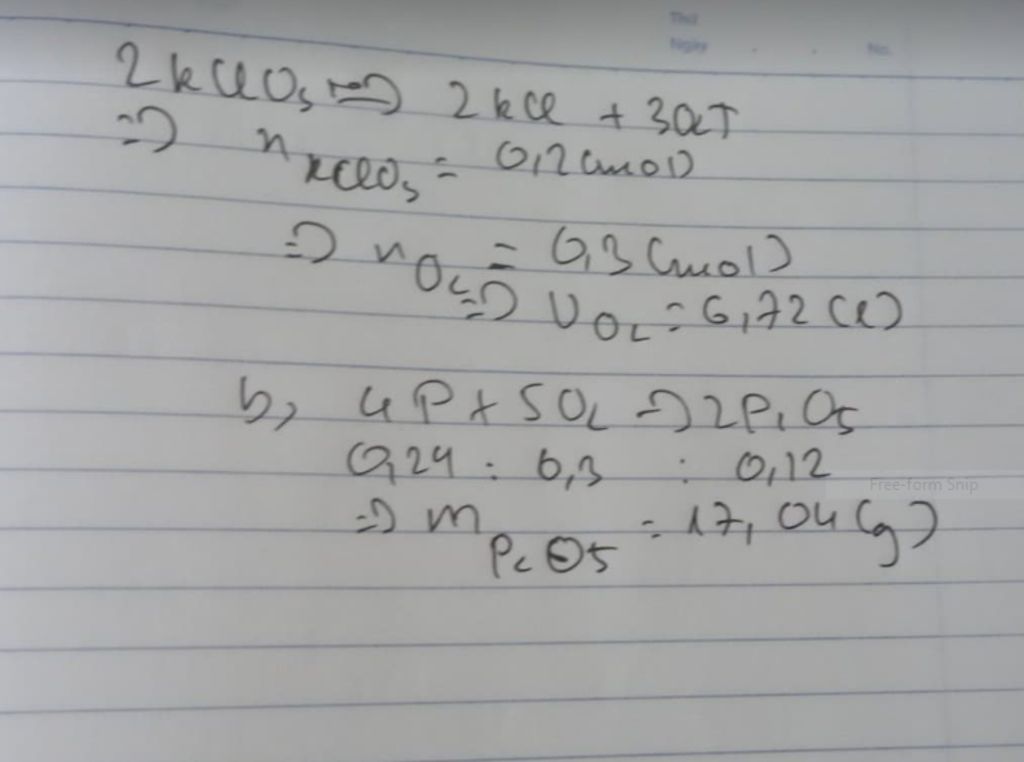 Thứ
Ngày . . No.
2KClO₃ => 2KCl + 3O₂↑
=> n KClO₃ = 0,2 (mol)
=> n O₂ = 0,3 (mol)
=> V O₂ = 6,72 (l)
b, 4P + 5O₂ => 2P₂O₅
0,24 : 0,3 : 0,12
=> m P₂O₅ = 17,04 (g)
Free-form Snip